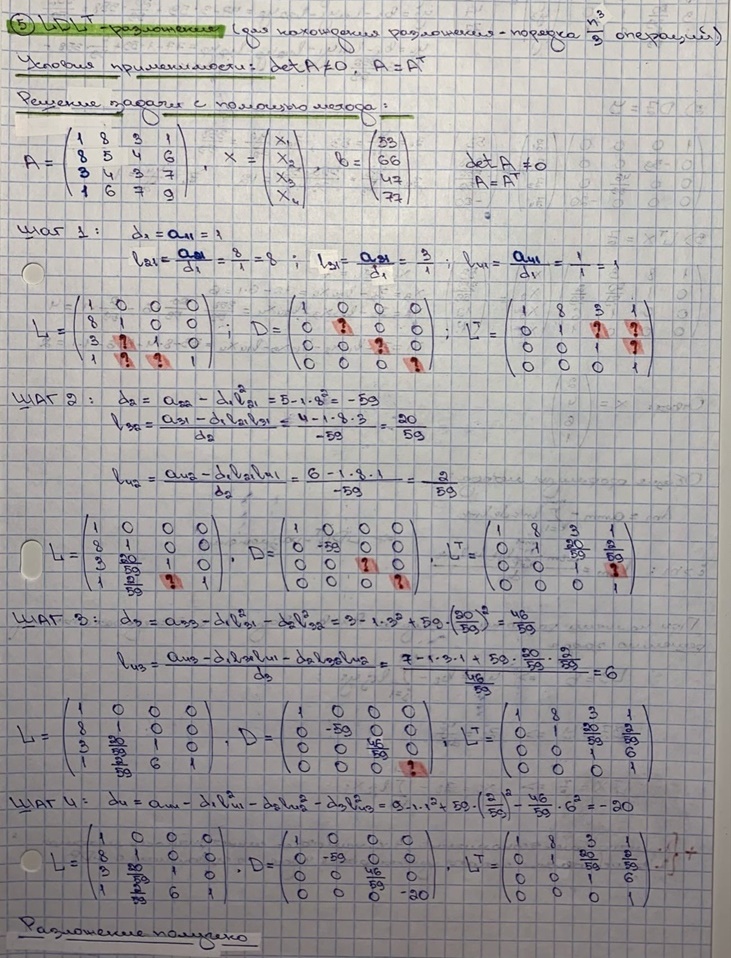 ⑤ LDLᵀ-разложение (для нахождения разложения - порядка n³/3 операций)
Условия применимости: det A ≠ 0, A = Aᵀ
Решение задачи с помощью метода:
A = (1 8 3 1; 8 5 4 6; 3 4 3 7; 1 6 7 9), x = (x₁; x₂; x₃; x₄), b = (53; 66; 47; 77) det A ≠ 0 A = Aᵀ
ШАГ 1: d₁ = a₁₁ = 1
l₂₁ = a₂₁/d₁ = 8/1 = 8; l₃₁ = a₃₁/d₁ = 3/1; l₄₁ = a₄₁/d₁ = 1/1 = 1
L = (1 0 0 0; 8 1 0 0; 3 ? 1 0; 1 ? ? 1); D = (1 0 0 0; 0 ? 0 0; 0 0 ? 0; 0 0 0 ?); Lᵀ = (1 8 3 1; 0 1 ? ?; 0 0 1 ?; 0 0 0 1)
ШАГ 2: d₂ = a₂₂ - d₁l²₂₁ = 5-1·8² = -59
l₃₂ = (a₃₁ - d₁l₂₁l₃₁)/d₂ = (4-1·8·3)/-59 = 20/59
l₄₂ = (a₄₂ - d₁l₂₁l₄₁)/d₂ = (6-1·8·1)/-59 = 2/59
L = (1 0 0 0; 8 1 0 0; 3 20/59 1 0; 1 2/59 ? 1), D = (1 0 0 0; 0 -59 0 0; 0 0 ? 0; 0 0 0 ?), Lᵀ = (1 8 3 1; 0 1 20/59 2/59; 0 0 1 ?; 0 0 0 1)
ШАГ 3: d₃ = a₃₃ - d₁l²₃₁ - d₂l²₃₂ = 3-1·3² + 59·(20/59)² = 46/59
l₄₃ = (a₄₃ - d₁l₃₁l₄₁ - d₂l₃₂l₄₂)/d₃ = (7-1·3·1 + 59·20/59·2/59)/(46/59) = 6
L = (1 0 0 0; 8 1 0 0; 3 20/59 1 0; 1 2/59 6 1), D = (1 0 0 0; 0 -59 0 0; 0 0 46/59 0; 0 0 0 ?), Lᵀ = (1 8 3 1; 0 1 20/59 2/59; 0 0 1 6; 0 0 0 1)
ШАГ 4: d₄ = a₄₄ - d₁l²₄₁ - d₂l²₄₂ - d₃l²₄₃ = 9-1·1² + 59·(2/59)² - 46/59·6² = -20
L = (1 0 0 0; 8 1 0 0; 3 20/59 1 0; 1 2/59 6 1), D = (1 0 0 0; 0 -59 0 0; 0 0 46/59 0; 0 0 0 -20), Lᵀ = (1 8 3 1; 0 1 20/59 2/59; 0 0 1 6; 0 0 0 1)
Разложение получено